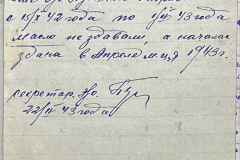 с 15/X 42 года по 1/IV 43 года
масло не здавали, а начала
здана в Апреле м-ця 1943 г.
секретар
22/IV 43 года